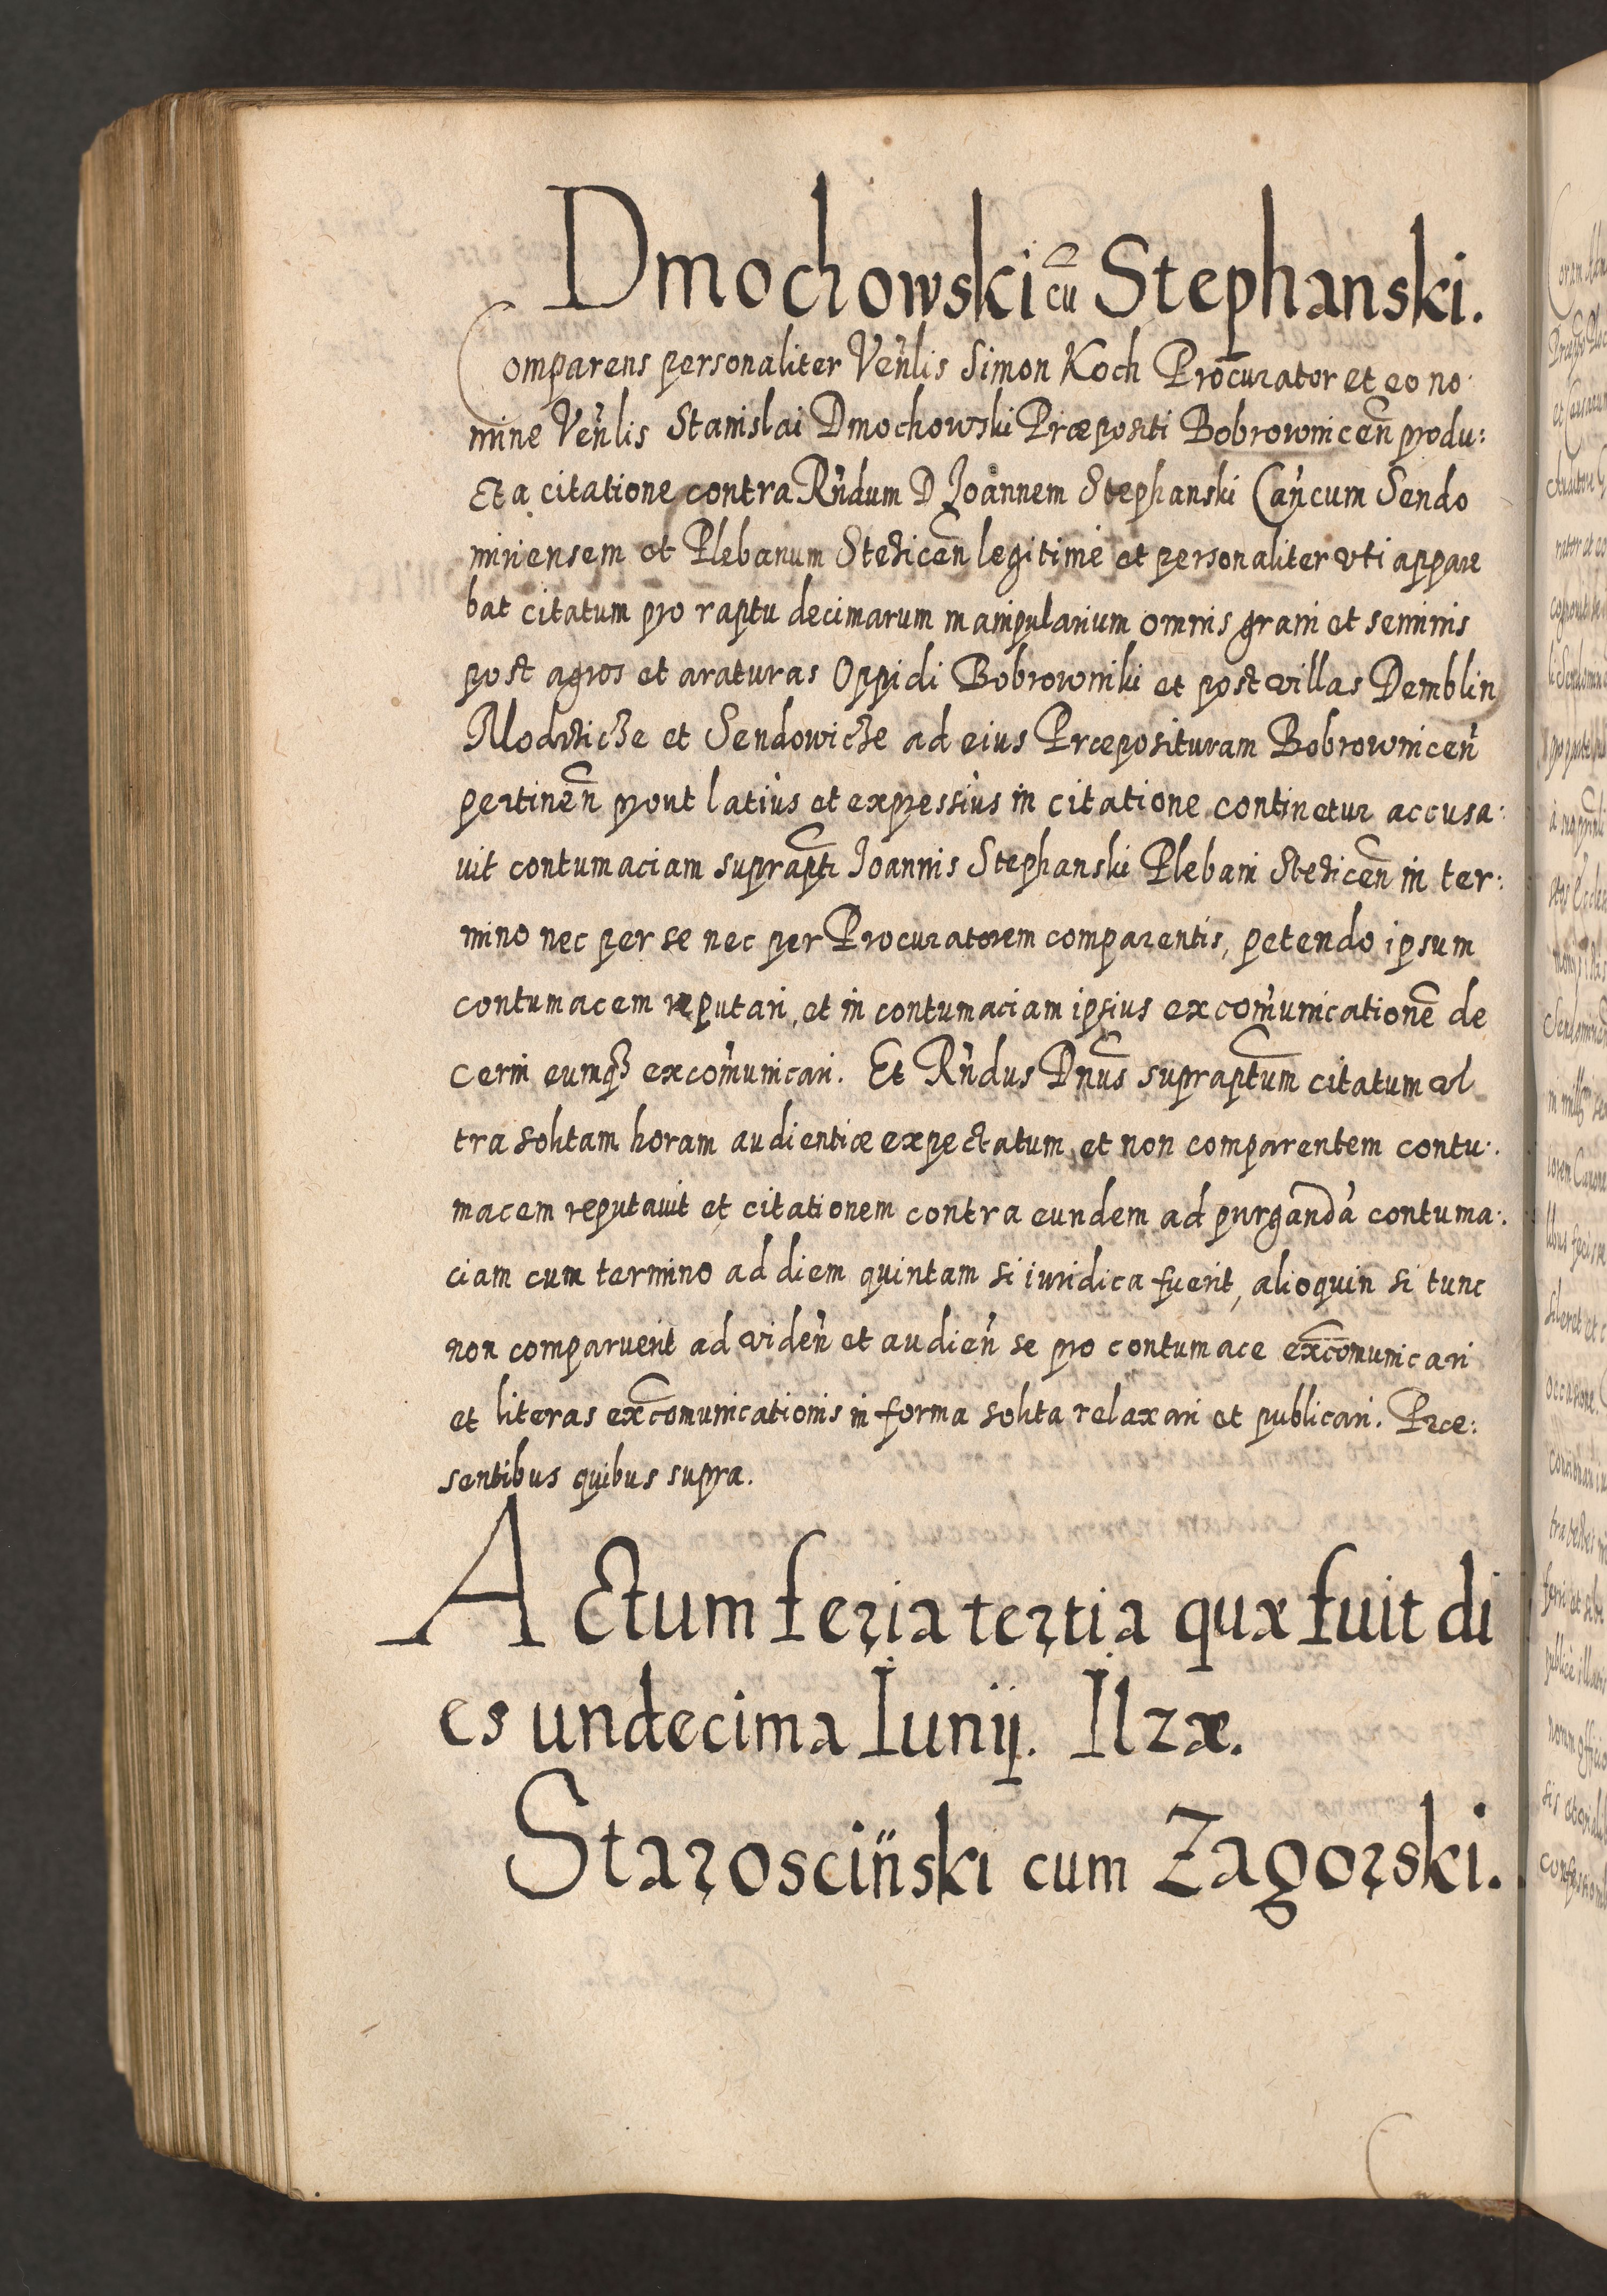 Dmochowski cũ Stephanski.
Comparens personaliter Veñlis Simon Koch Procurator et eo no:
mine Veñlis Stanislai Dmochowski Præpositi Bobrownicen̄ produ:
cta citatione contra Rñdum D Joannem Stephanski Cañcum Sendo
miriensem et Plebanum Stezicen̄ legitime et personaliter vti appare
bat citatum pro raptu decimarum manipularium omnis grani et seminis
post agros et araturas Oppidi Bobrowniki et post villas Demblin
et Sendowicze ad eius Præposituram Bobrownicen̄
pertinen̄ prout latius et expressius in citatione continetur accusa:
uit contumaciam suprapti Joannis Stephanski Plebani Stezicen̄ in ter:
mino nec per se nec per Procuratorem comparentis, petendo ipsum
contumacem reputari, et in contumaciam ipsius excom̃unicationē de
cerni eumqȝ excom̃unicari. Et Rñdus Dnus supraptum citatum vl
tra solitam horam audientiæ expectatum et non comparentem contu:
macem reputauit et citationem contra eundem ad purgandã contuma:
ciam cum termino ad diem quintam si iuridica fuerit, alioquin si tunc
non comparuerit ad videñ et audieñ se pro contumace excōmunicari
et literas excōmunicationis in forma solita relaxari et publicari. Præ:
sentibus quibus supra.
Actum feria tertia quæ fuit di
es undecima Iunij. Ilzæ.
Starosciński cum Zagorski.